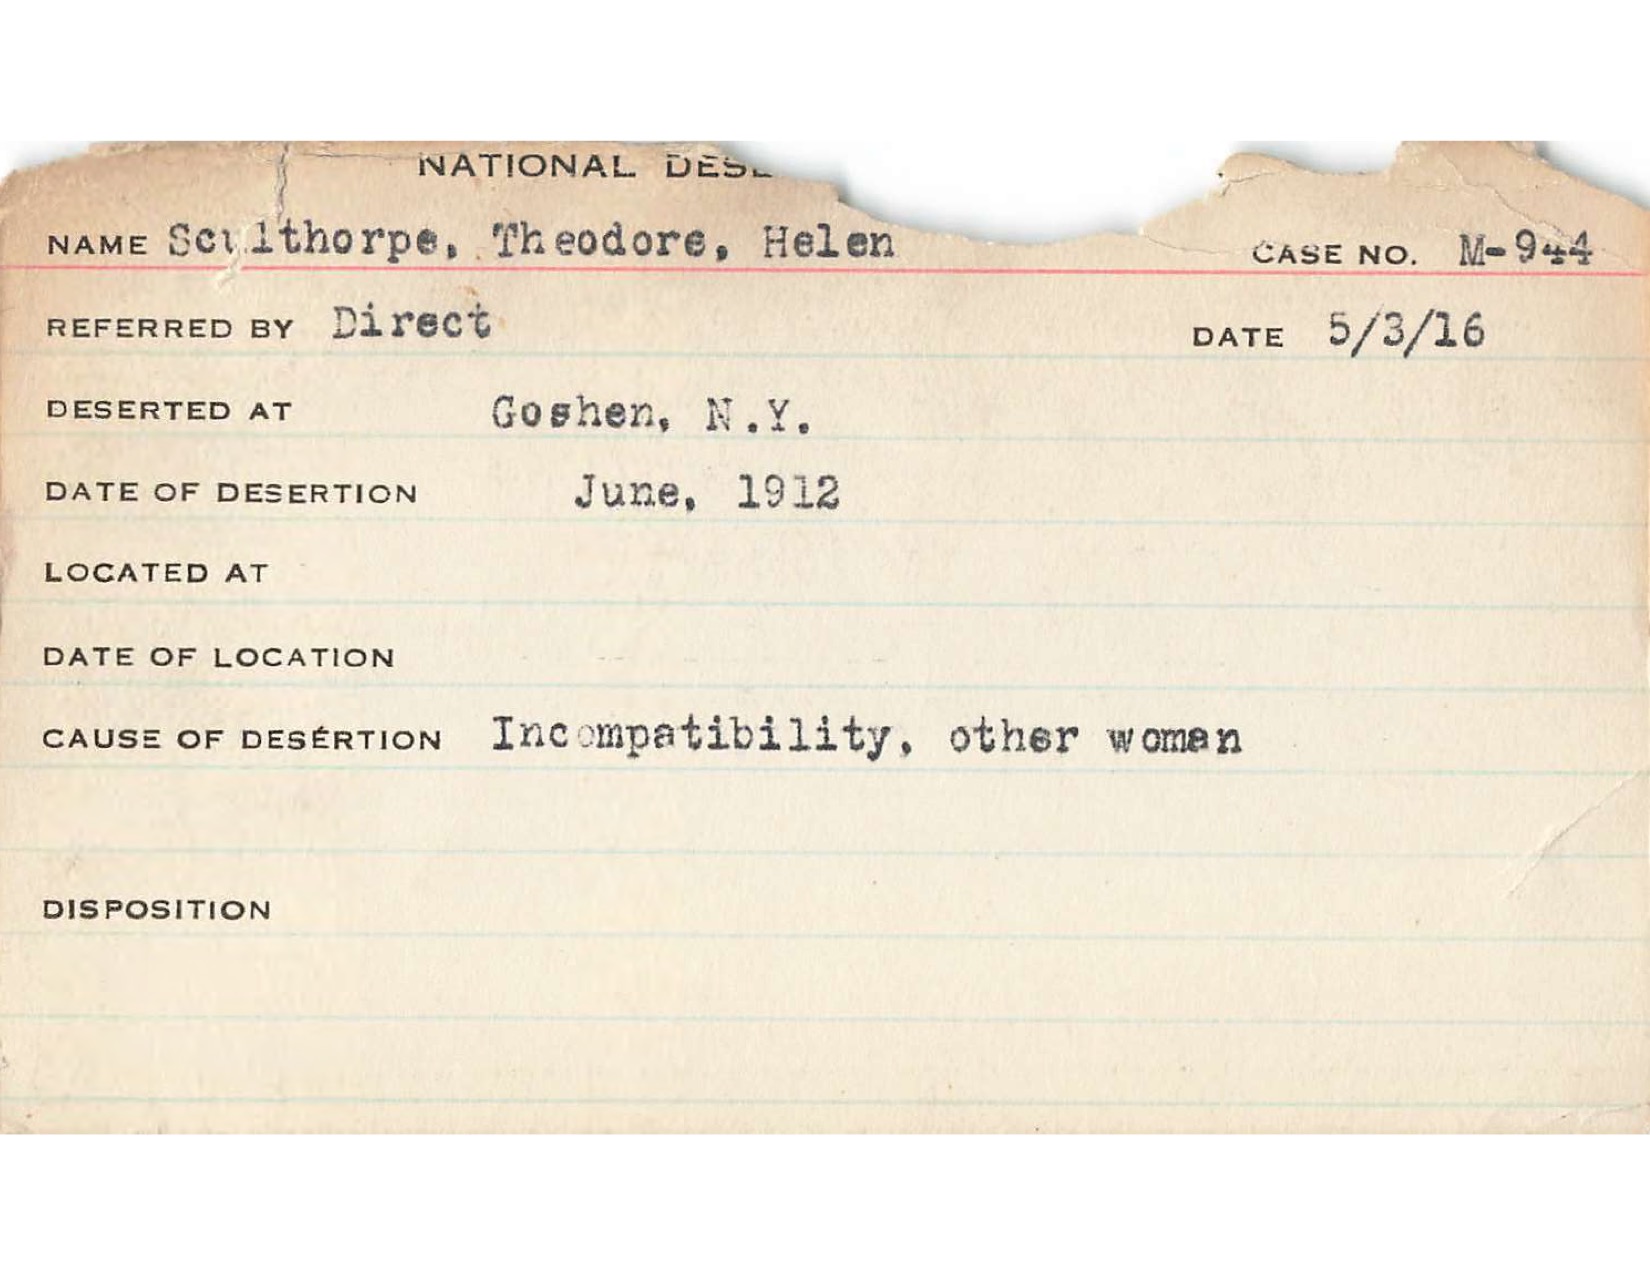 NATIONAL
NAME Sculthorpe, Theodore, Helen CASE NO. M-944
REFERRED BY Direct DATE 5/3/16
DESERTED AT Goshen, N.Y.
DATE OF DESERTION June, 1912
LOCATED AT
DATE OF LOCATION
CAUSE OF DESERTION Incompatibility, other woman
DISPOSITION